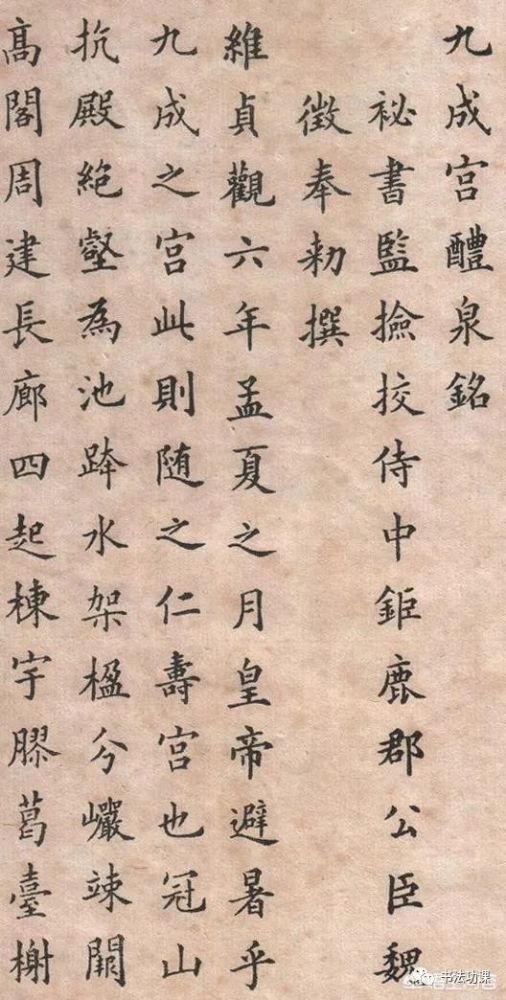 九成宮醴泉銘
祕書監撿挍侍中鉅鹿郡公臣魏
徵奉勑撰
維貞觀六年孟夏之月皇帝避暑乎
九成之宮此則随之仁壽宮也冠山
抗殿絶壑為池跨水架楹分巖竦闕
髙閣周建長廊四起棟宇膠葛臺榭
书法功课